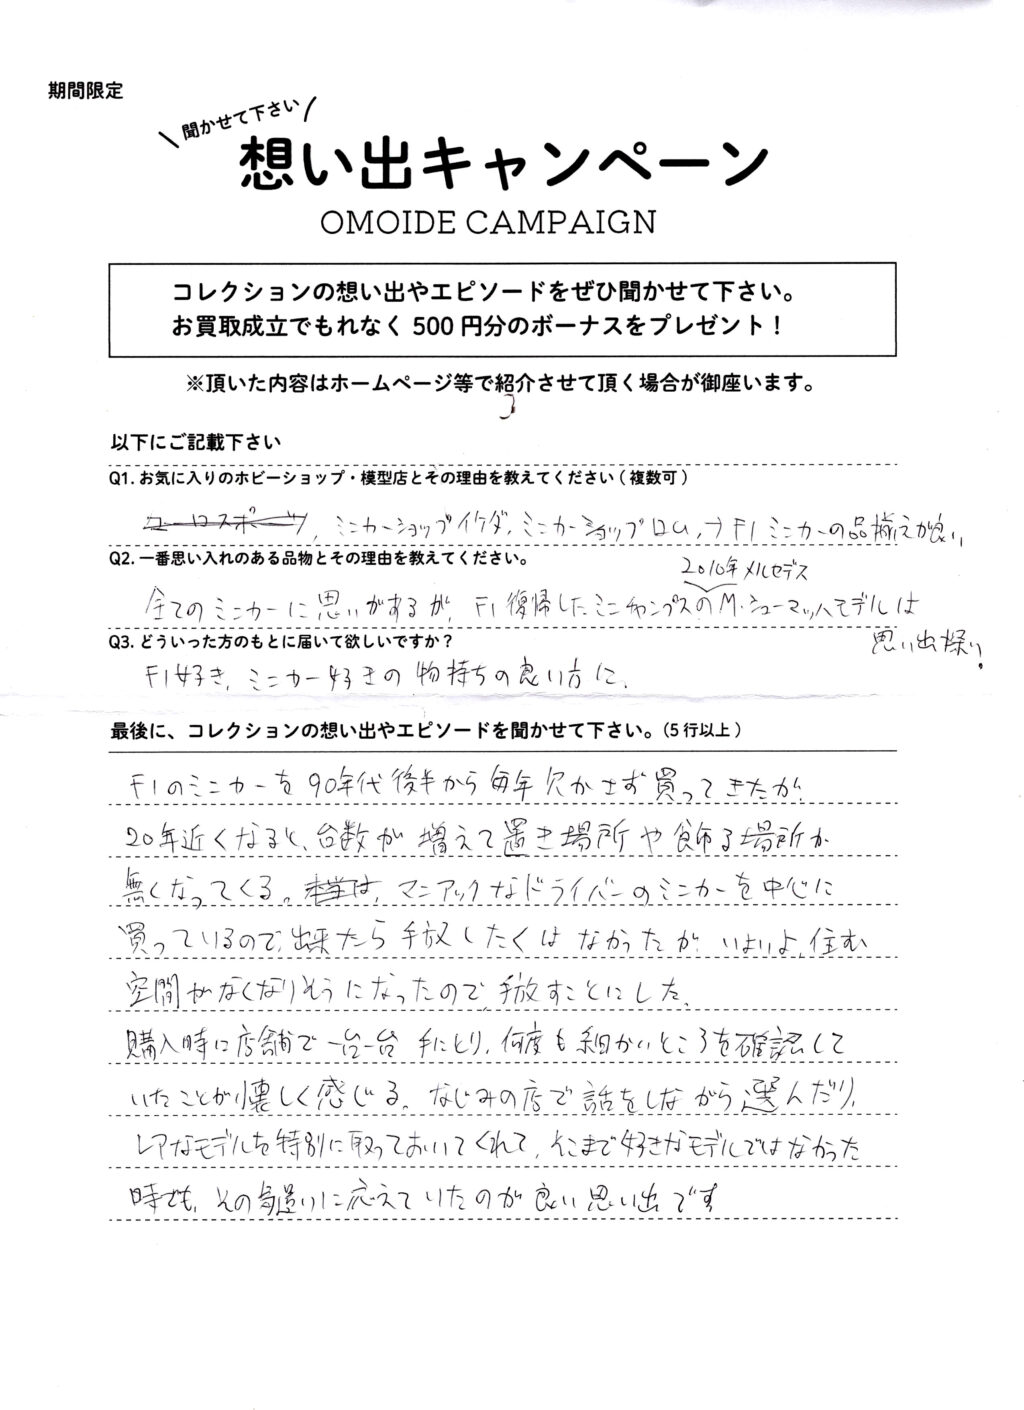 期間限定
聞かせて下さい
想い出キャンペーン
OMOIDE CAMPAIGN
コレクションの想い出やエピソードをぜひ聞かせて下さい。
お買取成立でもれなく 500 円分のボーナスをプレゼント！
※頂いた内容はホームページ等で紹介させて頂く場合が御座います。
以下にご記載下さい
Q1. お気に入りのホビーショップ・模型店とその理由を教えてください ( 複数可 )
ユーロスポーツ, ミニカーショップイケダ, ミニカーショップロム, → F1 ミニカーの品揃えが良い,
Q2. 一番思い入れのある品物とその理由を教えてください。
2010年メルセデス
全てのミニカーに思いがあるが, F1 復帰したミニチャンプスのM・シューマッハモデルは
思い出深い.
Q3. どういった方のもとに届いて欲しいですか？
F1好き, ミニカー好きの物持ちの良い方に.
最後に、コレクションの想い出やエピソードを聞かせて下さい。(5 行以上 )
F1のミニカーを90年代後半から毎年欠かさず買ってきたが.
20年近くなると、台数が増えて置き場所や飾る場所が
無くなってくる。 マニアックなドライバーのミニカーを中心に
買っているので、出来たら手放したくはなかったが、いよいよ、住む
空間がなくなりそうになったので手放すことにした.
購入時に店舗で一台一台手にとり, 何度も細かいところを確認して
いたことが懐しく感じる. なじみの店で話をしながら選んだり,
レアなモデルを特別に取っておいてくれて, そこまで好きなモデルではなかった
時でも, その気遣いに応えていたのが良い思い出です